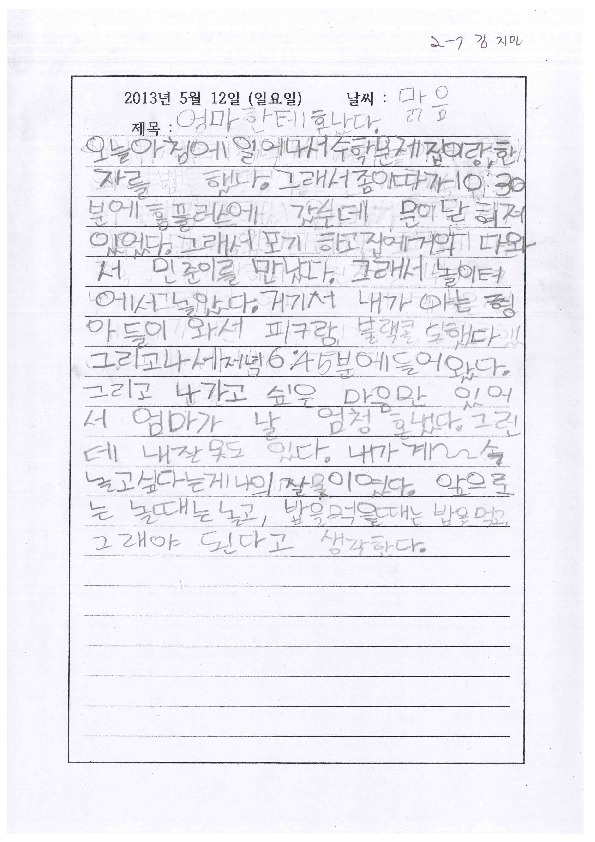 2-7 김지민
2013년 5월 12일 (일요일) 날씨 : 맑음
제목 : 엄마한테 혼났다.
오늘아침에 일어나서 수학문제집이랑, 한
자를 했다. 그래서 좀이따가 10:30
분에 홈플러스에 갔는데 문이 닫혀저
있었다. 그래서 포기 하고 집에거의 다와
서 민준이를 만났다. 그래서 놀이터
에서 놀았다. 거기서 내가 아는 형
아들이 와서 피구랑, 블랙홀 도했다
그리고나서 저녁 6:45분에 들어왔다.
그리고 나가고 싶은 마음만 있어
서 엄마가 날 엄청 혼냈다. 그런
데 내잘못도 있다. 내가 계~~속
놀고싶다는게 나의 잘못이였다. 앞으로
는 놀때는 놀고, 밥을먹을때는 밥을먹고,
그래야 된다고 생각한다.